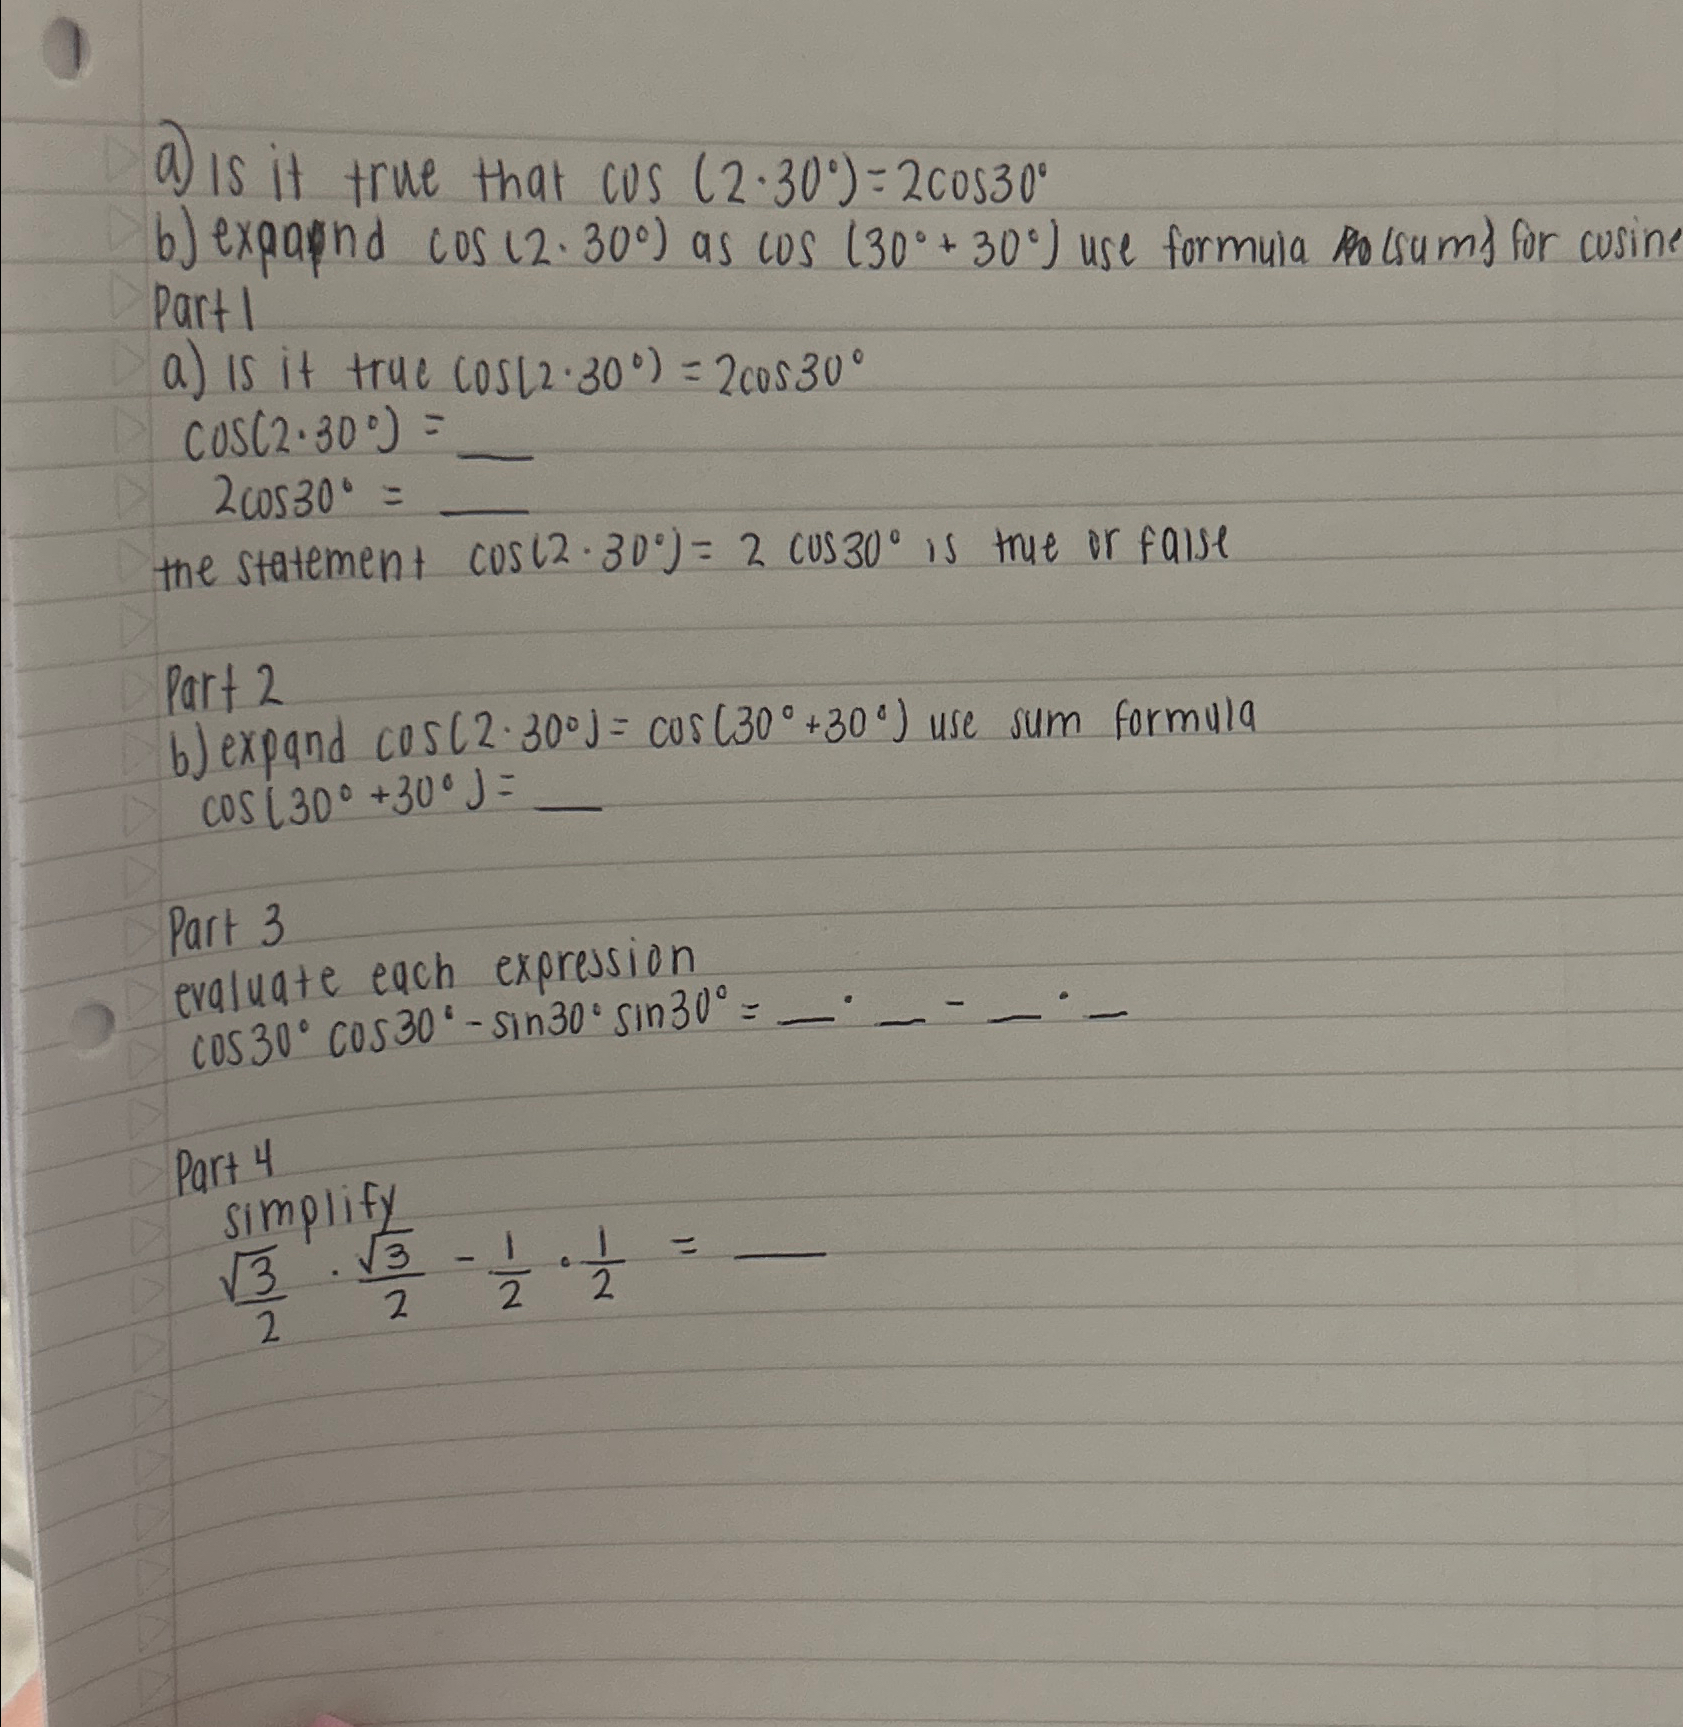 a) is it true that cos (2·30°)=2cos30°
b) expand cos(2·30°) as cos (30°+30°) use formula (sum) for cosine
Part 1
a) is it true cos(2·30°) = 2cos30°
cos(2·30°) = __
2cos30° = __
the statement cos(2·30°) = 2 cos30° is true or false
Part 2
b) expand cos(2·30°) = cos(30°+30°) use sum formula
cos(30°+30°) = __
Part 3
evaluate each expression
cos30° cos30° - sin30° sin30° = __ · __ - __ · __
Part 4
simplify
√3/2 · √3/2 - 1/2 · 1/2 = __